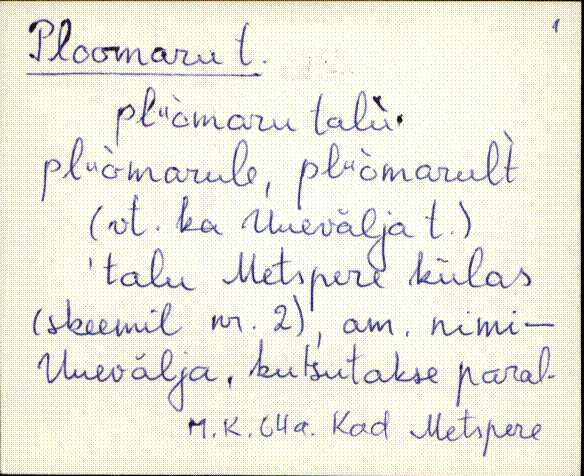 1
Ploomaru t.
plᵘòmaru talù.
plᵘòmarule, plᵘòmarult̀
(vt. ka Uuevälja t.)
talu Metspere külas
(skeemil nr. 2), am. nimi-
Uuevälja, kutsutakse paral-
M.K. 64a. Kad Metspere